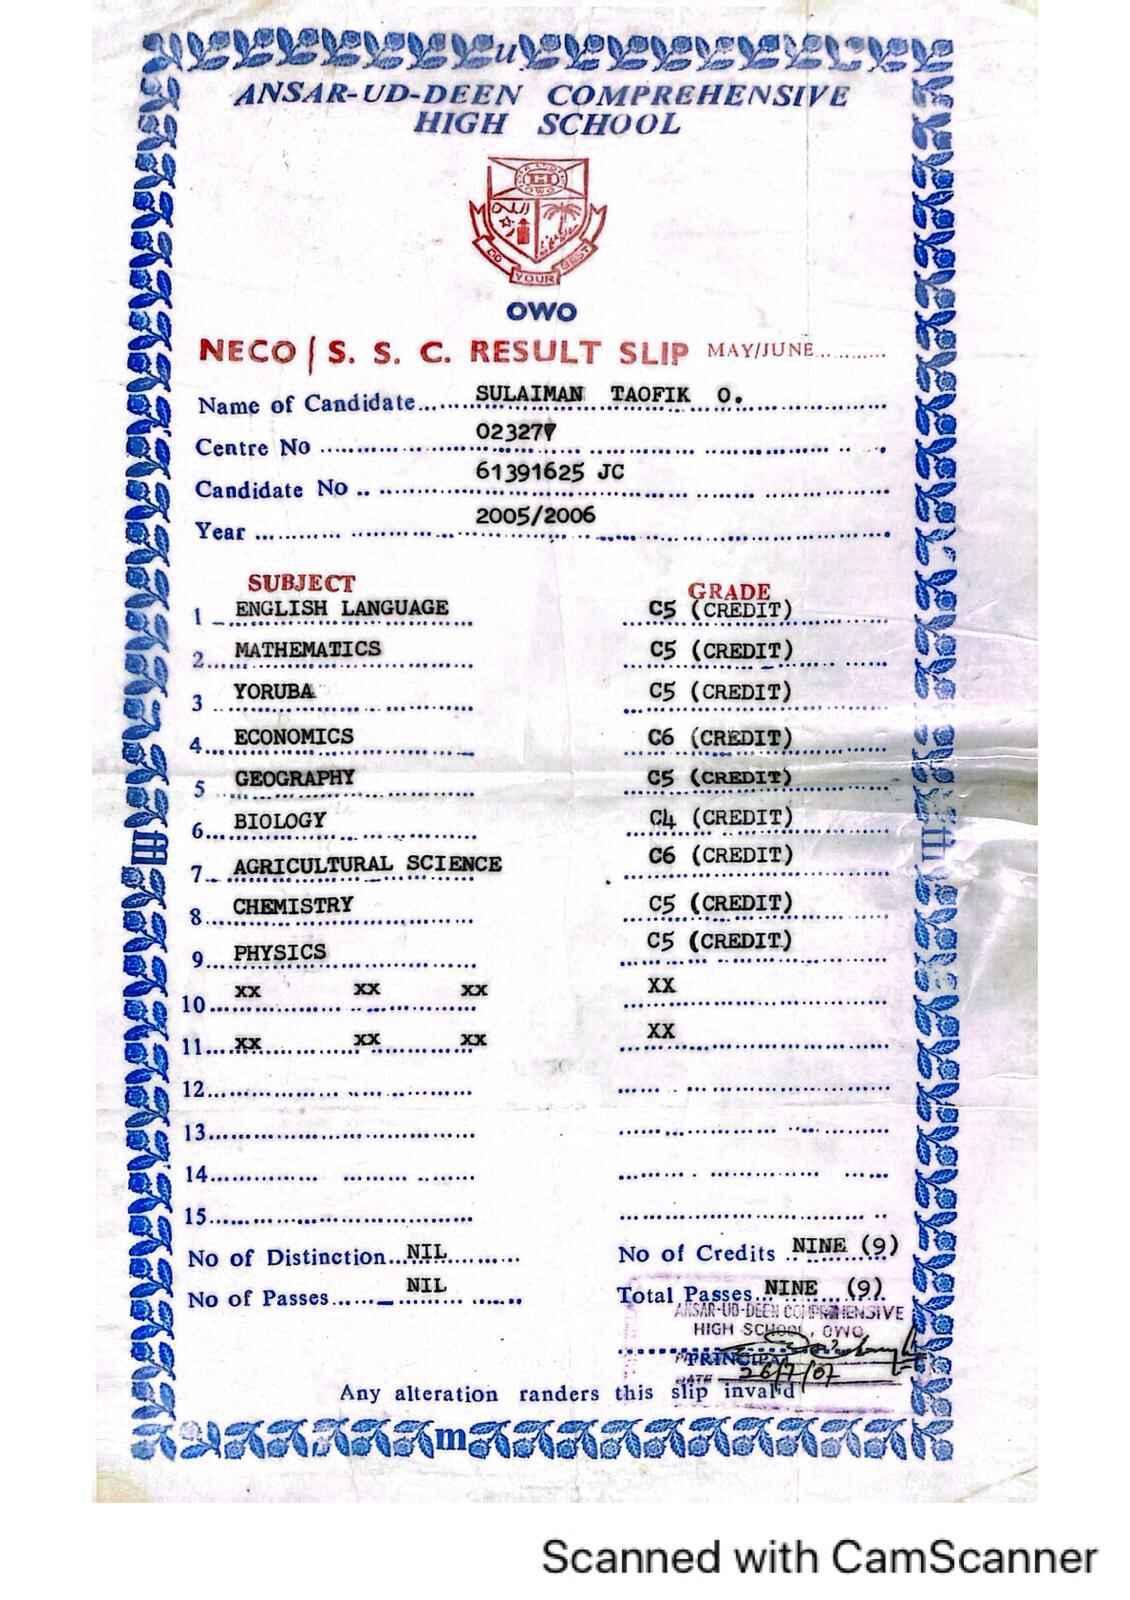 ANSAR-UD-DEEN COMPREHENSIVE
HIGH SCHOOL
OWO
DO YOUR BEST
OWO
NECO / S. S. C. RESULT SLIP MAY/JUNE...........
Name of Candidate... SULAIMAN TAOFIK O.
Centre No ... 023277
Candidate No .. 61391625 JC
Year ... 2005/2006
SUBJECT GRADE
1 ENGLISH LANGUAGE C5 (CREDIT)
2 MATHEMATICS C5 (CREDIT)
3 YORUBA C5 (CREDIT)
4 ECONOMICS C6 (CREDIT)
5 GEOGRAPHY C5 (CREDIT)
6 BIOLOGY C4 (CREDIT)
7 AGRICULTURAL SCIENCE C6 (CREDIT)
8 CHEMISTRY C5 (CREDIT)
9 PHYSICS C5 (CREDIT)
10 XX XX XX XX
11 XX XX XX XX
12
13
14
15
No of Distinction... NIL No of Credits NINE (9)
No of Passes... NIL Total Passes... NINE (9)
ANSAR-UD-DEEN COMPREHENSIVE
HIGH SCHOOL, OWO
PRINCIPAL
DATE 26/7/07
Any alteration randers this slip invalid
Scanned with CamScanner